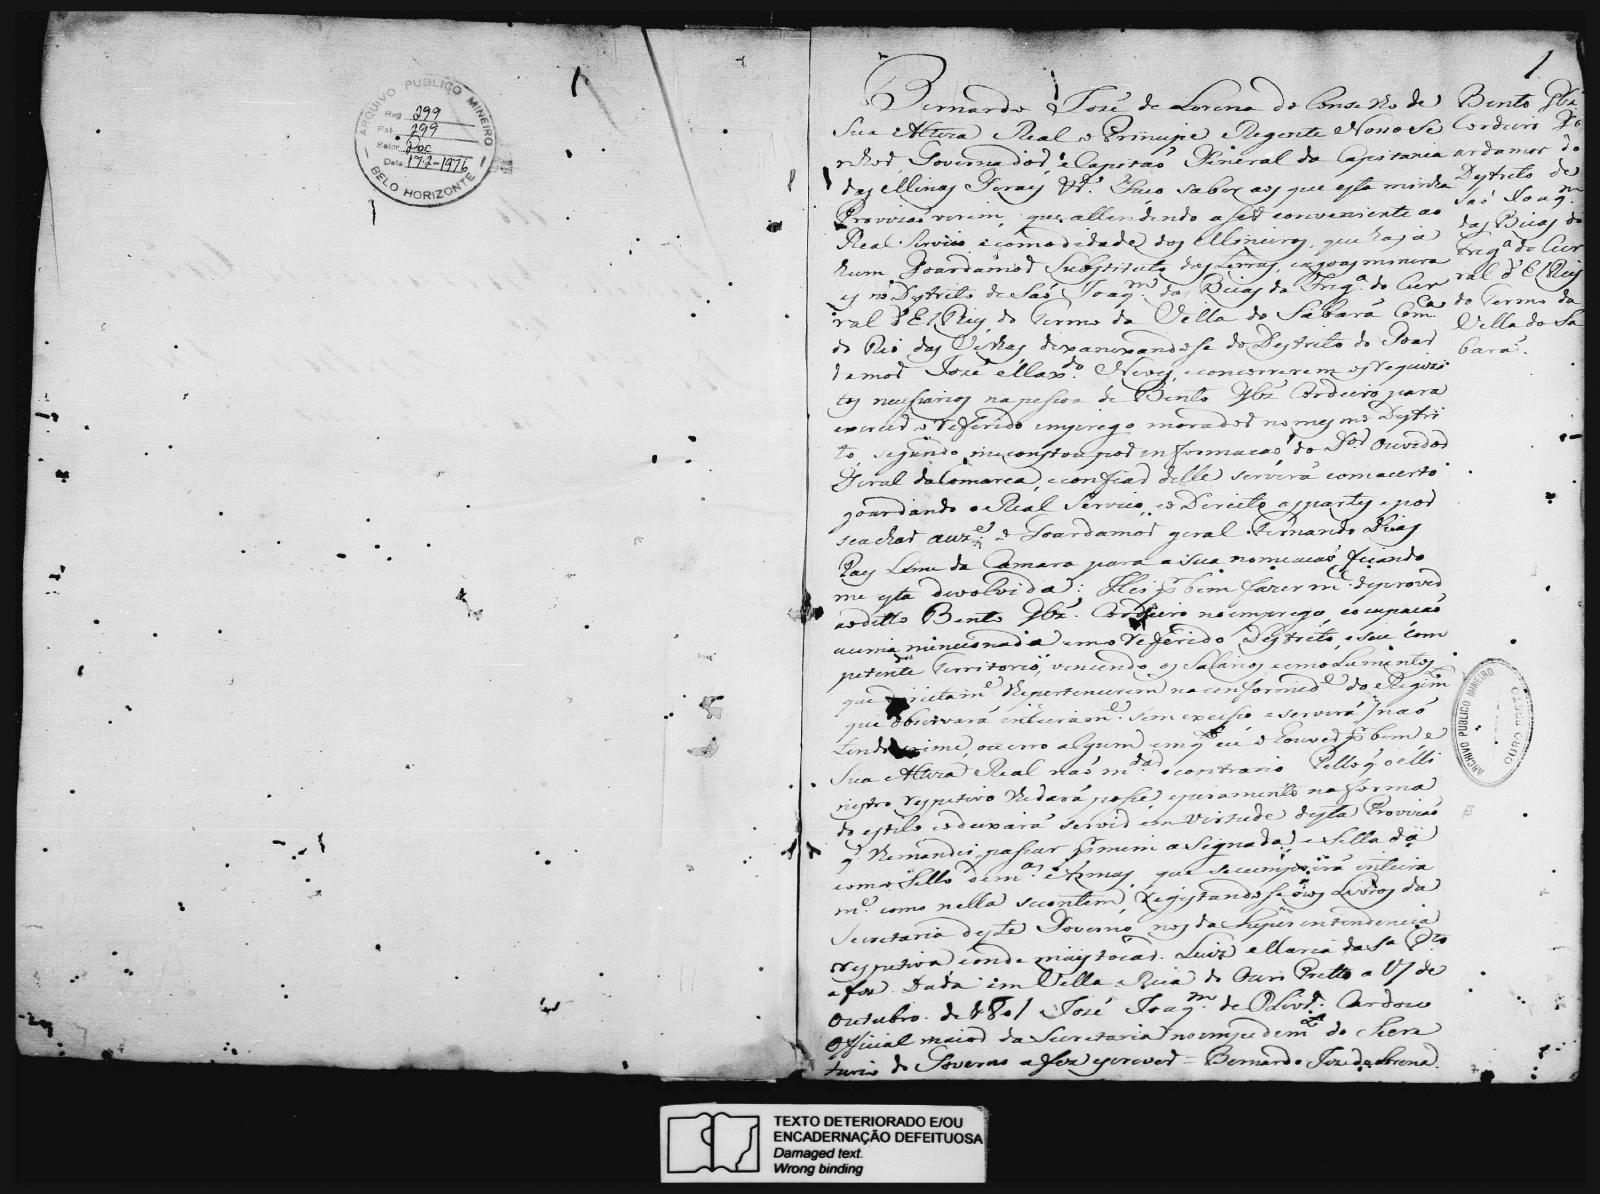 ARQUIVO PUBLICO MINEIRO
Reg. 299
Est. 299
Setor Doc
Data 17-2-1976
BELO HORIZONTE
1
Bernardo José de Lorena do Conselho de
Sua Alteza Real o Principe Regente Nosso Se
nhor Governador e Capitaõ General da Capitania
das Minas Geraes &ª. Faco saber aos que esta minha
Provizaõ virem, que attendendo a ser conveniente ao
Real Servico e comodidade dos Mineiros, que haja
hum Goardamor Substituto das terras, e agoas minera
es no Destrito de Saõ Joaqᵐ. das Bicas da Fregª. do Cur
ral d'El Rey, do Termo da Villa do Sabará Comᶜᵃ
do Rio das Velhas dexanexandose do Destrito do Goar
damor José Neves, e concorrerem os requizi
tos necessarios na pessoa de Bento Cordeiro para
exercer o referido emprego morador no mesmo Destri
to, segundo me constou por informacaõ do Dᵒʳ Ouvidor
Geral da Comarca, e confiar delle servirá com acerto
goardando o Real Servico, e o Direito as partes, e por
se achar auzᵉ. o Goardamor geral Fernando Dias
Paes Leme da Camara para a sua nomeacaõ, ficando
me esta devolvida: Hei por bem fazer mᶜᵉ. de prover
ao ditto Bento Cordeiro no emprego, e ocupacaõ
acima mencionada em o referido Destrito, e seu Com
petente territorio, vencendo os Salarios e emolumentos
que direitamᵉ. lhe pertencerem na conformidᵉ. do Regim
que observará inteiramᵉ. sem excesso e servirá naõ
tendo crime ou erro algum em q eu o houver por bem e
Sua Alteza Real naõ mᵈᵃʳ o contrario Pello q o Mi
nistro respetivo lhe dará posse e juramento na forma
do estilo e o deixará servir em virtude desta Provizaõ
q lhe mandei passar por mim asignada e sellada
com o Sello de mᵃˢ. Armas, que se cumprirá inteira
mᵉ. como nella se contem, Registandose nos Livros da
Secretaria deste Governo, nos da Superintendencia
respetiva e onde mais tocar. Luis Maria da Sª Pᵗᵒ
a fez. Dada em Villa Rica do Ouro Preto a 17 de
Outubro de 1801 José Joaqᵐ. de Olivʳᵃ. Cardozo
Official maior da Secretaria no empedemᵗᵒ do Secre
tario do Governo a fez escrever = Bernardo Jozé de Lorena.
Bento
Cordeiro
ardamor do
Destrito de
Saõ Joaqᵐ
das Bicas da
Fregª do Cur
ral d'El Rey
do Termo da
Villa do Sa
bará.
ARCHIVO PUBLICO MINEIRO
OURO PRETO
TEXTO DETERIORADO E/OU
ENCADERNAÇÃO DEFEITUOSA
Damaged text.
Wrong binding